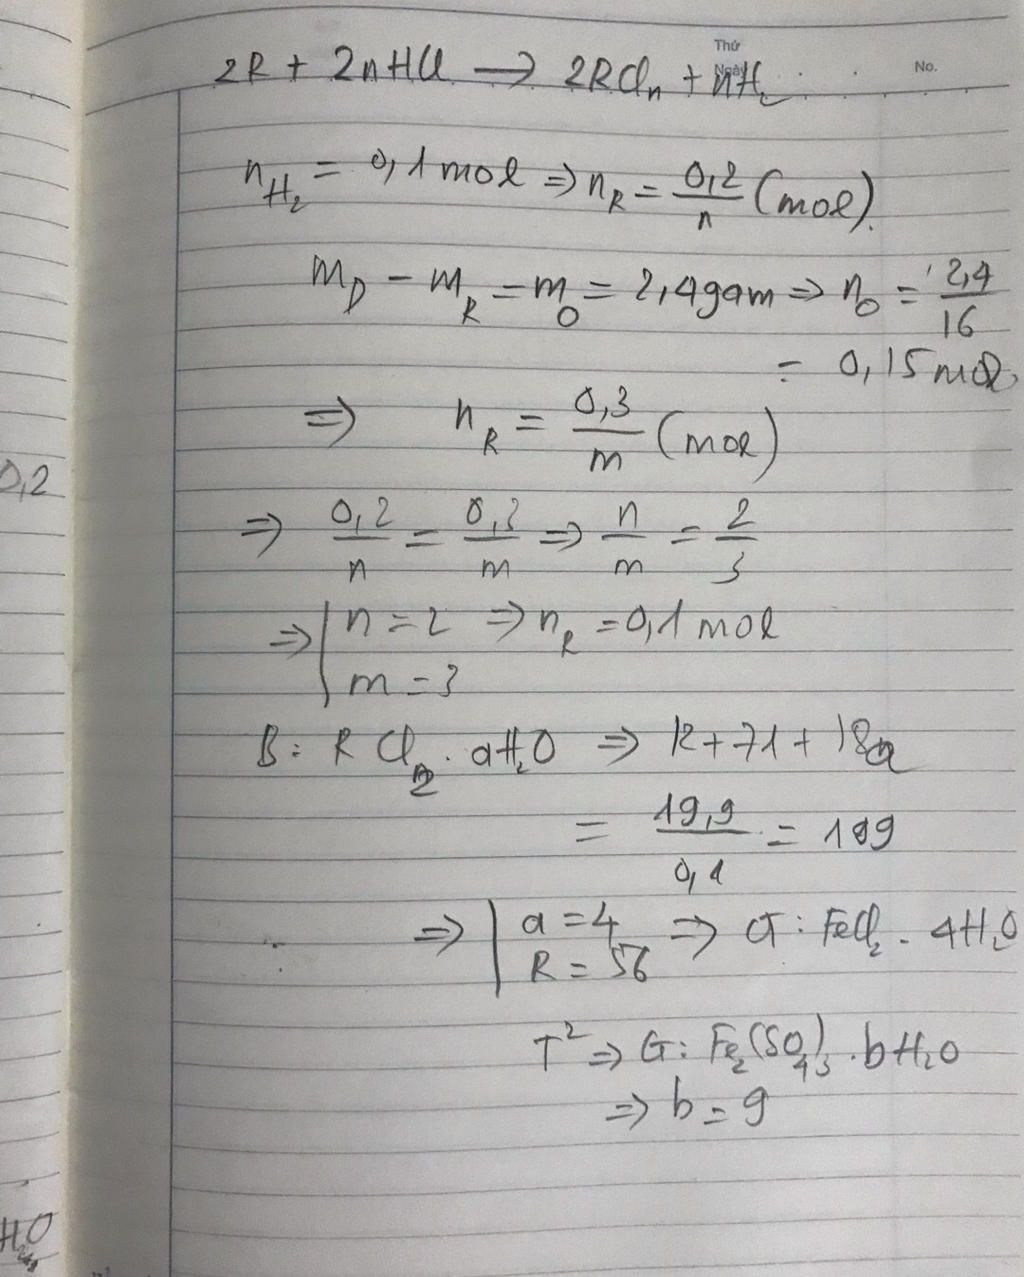 Thứ
Ngày
No.
2R + 2nHCl → 2RClₙ + nH₂
n_H₂ = 0,1 mol ⇒ n_R = 0,2/n (mol).
m_D - m_R = m_O = 2,4 gam ⇒ n_O = 2,4/16
= 0,15 mol
⇒ n_R = 0,3/m (mol)
0,2
⇒ 0,2/n = 0,3/m ⇒ n/m = 2/3
⇒ | n = 2 ⇒ n_R = 0,1 mol
m = 3
B: RCl₂ . aH₂O ⇒ R + 71 + 18a
= 19,9/0,1 = 199
⇒ | a = 4 ⇒ G: FeCl₂ . 4H₂O
R = 56
T² ⇒ G: Fe₂(SO₄)₃ . bH₂O
⇒ b = 9
H₂O